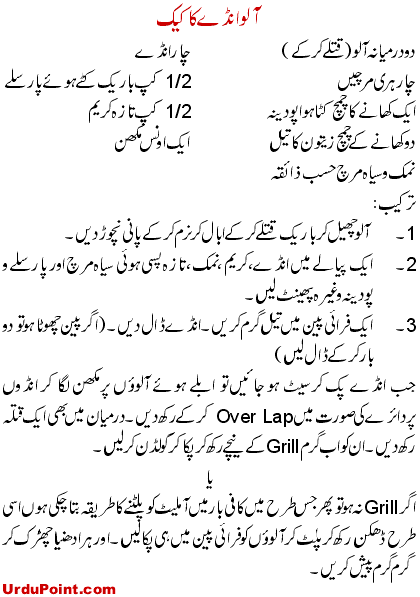 آلو انڈے کا کیک
دو درمیانہ آلو (قتلے کر کے) چار انڈے
چار ہری مرچیں 1/2 کپ باریک کٹے ہوئے پارسلے
ایک کھانے کا چمچ کٹا ہوا پودینہ 1/2 کپ تازہ کریم
دو کھانے کے چمچ زیتون کا تیل ایک اونس مکھن
نمک و سیاہ مرچ حسب ذائقہ
ترکیب:
1۔ آلو چھیل کر باریک قتلے کر کے ابال کر نرم کر کے پانی نچوڑ دیں۔
2۔ ایک پیالے میں انڈے، کریم، نمک، تازہ پسی ہوئی سیاہ مرچ اور پارسلے و
پودینہ وغیرہ پھینٹ لیں۔
3۔ ایک فرائی پین میں تیل گرم کریں۔ انڈے ڈال دیں۔ (اگر پین چھوٹا ہو تو دو
بار کر کے ڈال لیں)
جب انڈے پک کر سیٹ ہو جائیں تو ابلے ہوئے آلوؤں پر مکھن لگا کر انڈوں
پر دائرے کی صورت میں Over Lap کر کے رکھ دیں۔ درمیان میں بھی ایک قتلہ
رکھ دیں۔ ان کو اب گرم Grill کے نیچے رکھ کر پکا کر گولڈن کر لیں۔
یا
اگر Grill نہ ہو تو پھر جس طرح میں کافی بار میں آملیٹ کو پلٹنے کا طریقہ بتا چکی ہوں اسی
طرح ڈھکن رکھ کر پلٹ کر آلوؤں کو فرائی پین میں ہی پکا لیں۔ اور ہرا دھنیا چھڑک کر
گرم گرم پیش کریں۔
UrduPoint.com